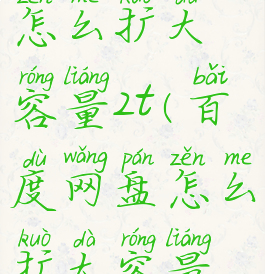 zěn me kuò dà
怎么扩大
róng liàng bǎi
容量2t(百
dù wǎng pán zěn me
度网盘怎么
kuò dà róng liàng
扩大容量